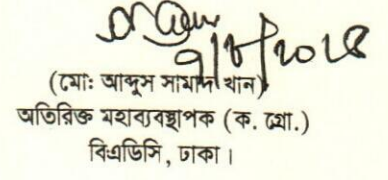 ৭/৮/২০২৪
(মোঃ আব্দুস সামাদ খান)
অতিরিক্ত মহাব্যবস্থাপক (ক. গ্রো.)
বিএডিসি, ঢাকা।